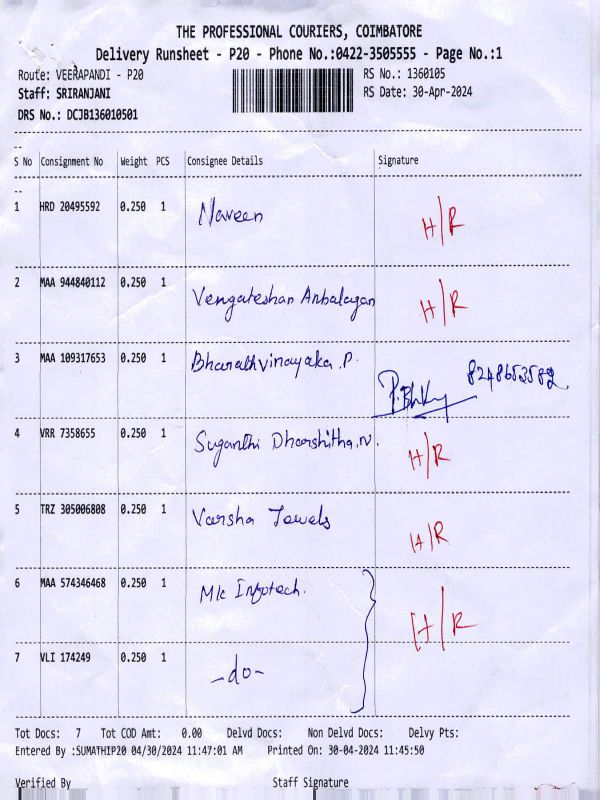 THE PROFESSIONAL COURIERS, COIMBATORE
Delivery Runsheet - P20 - Phone No.:0422-3505555 - Page No.:1
Route: VEERAPANDI - P20 RS No.: 1360105
Staff: SRIRANJANI RS Date: 30-Apr-2024
DRS No.: DCJB136010501
S No Consignment No Weight PCS Consignee Details Signature
1 HRD 20495592 0.250 1 Naveen H/R
2 MAA 944840112 0.250 1 Vengateshan Anbalagan H/R
3 MAA 109317653 0.250 1 Bharathvinayaka.P. 8248653582
4 VRR 7358655 0.250 1 Suganthi Dharshitha.N. H/R
5 TRZ 305006808 0.250 1 Varsha Towels H/R
6 MAA 574346468 0.250 1 Mk Infotech. H/R
7 VLI 174249 0.250 1 -do-
Tot Docs: 7 Tot COD Amt: 0.00 Delvd Docs: Non Delvd Docs: Delvy Pts:
Entered By :SUMATHIP20 04/30/2024 11:47:01 AM Printed On: 30-04-2024 11:45:50
Verified By Staff Signature